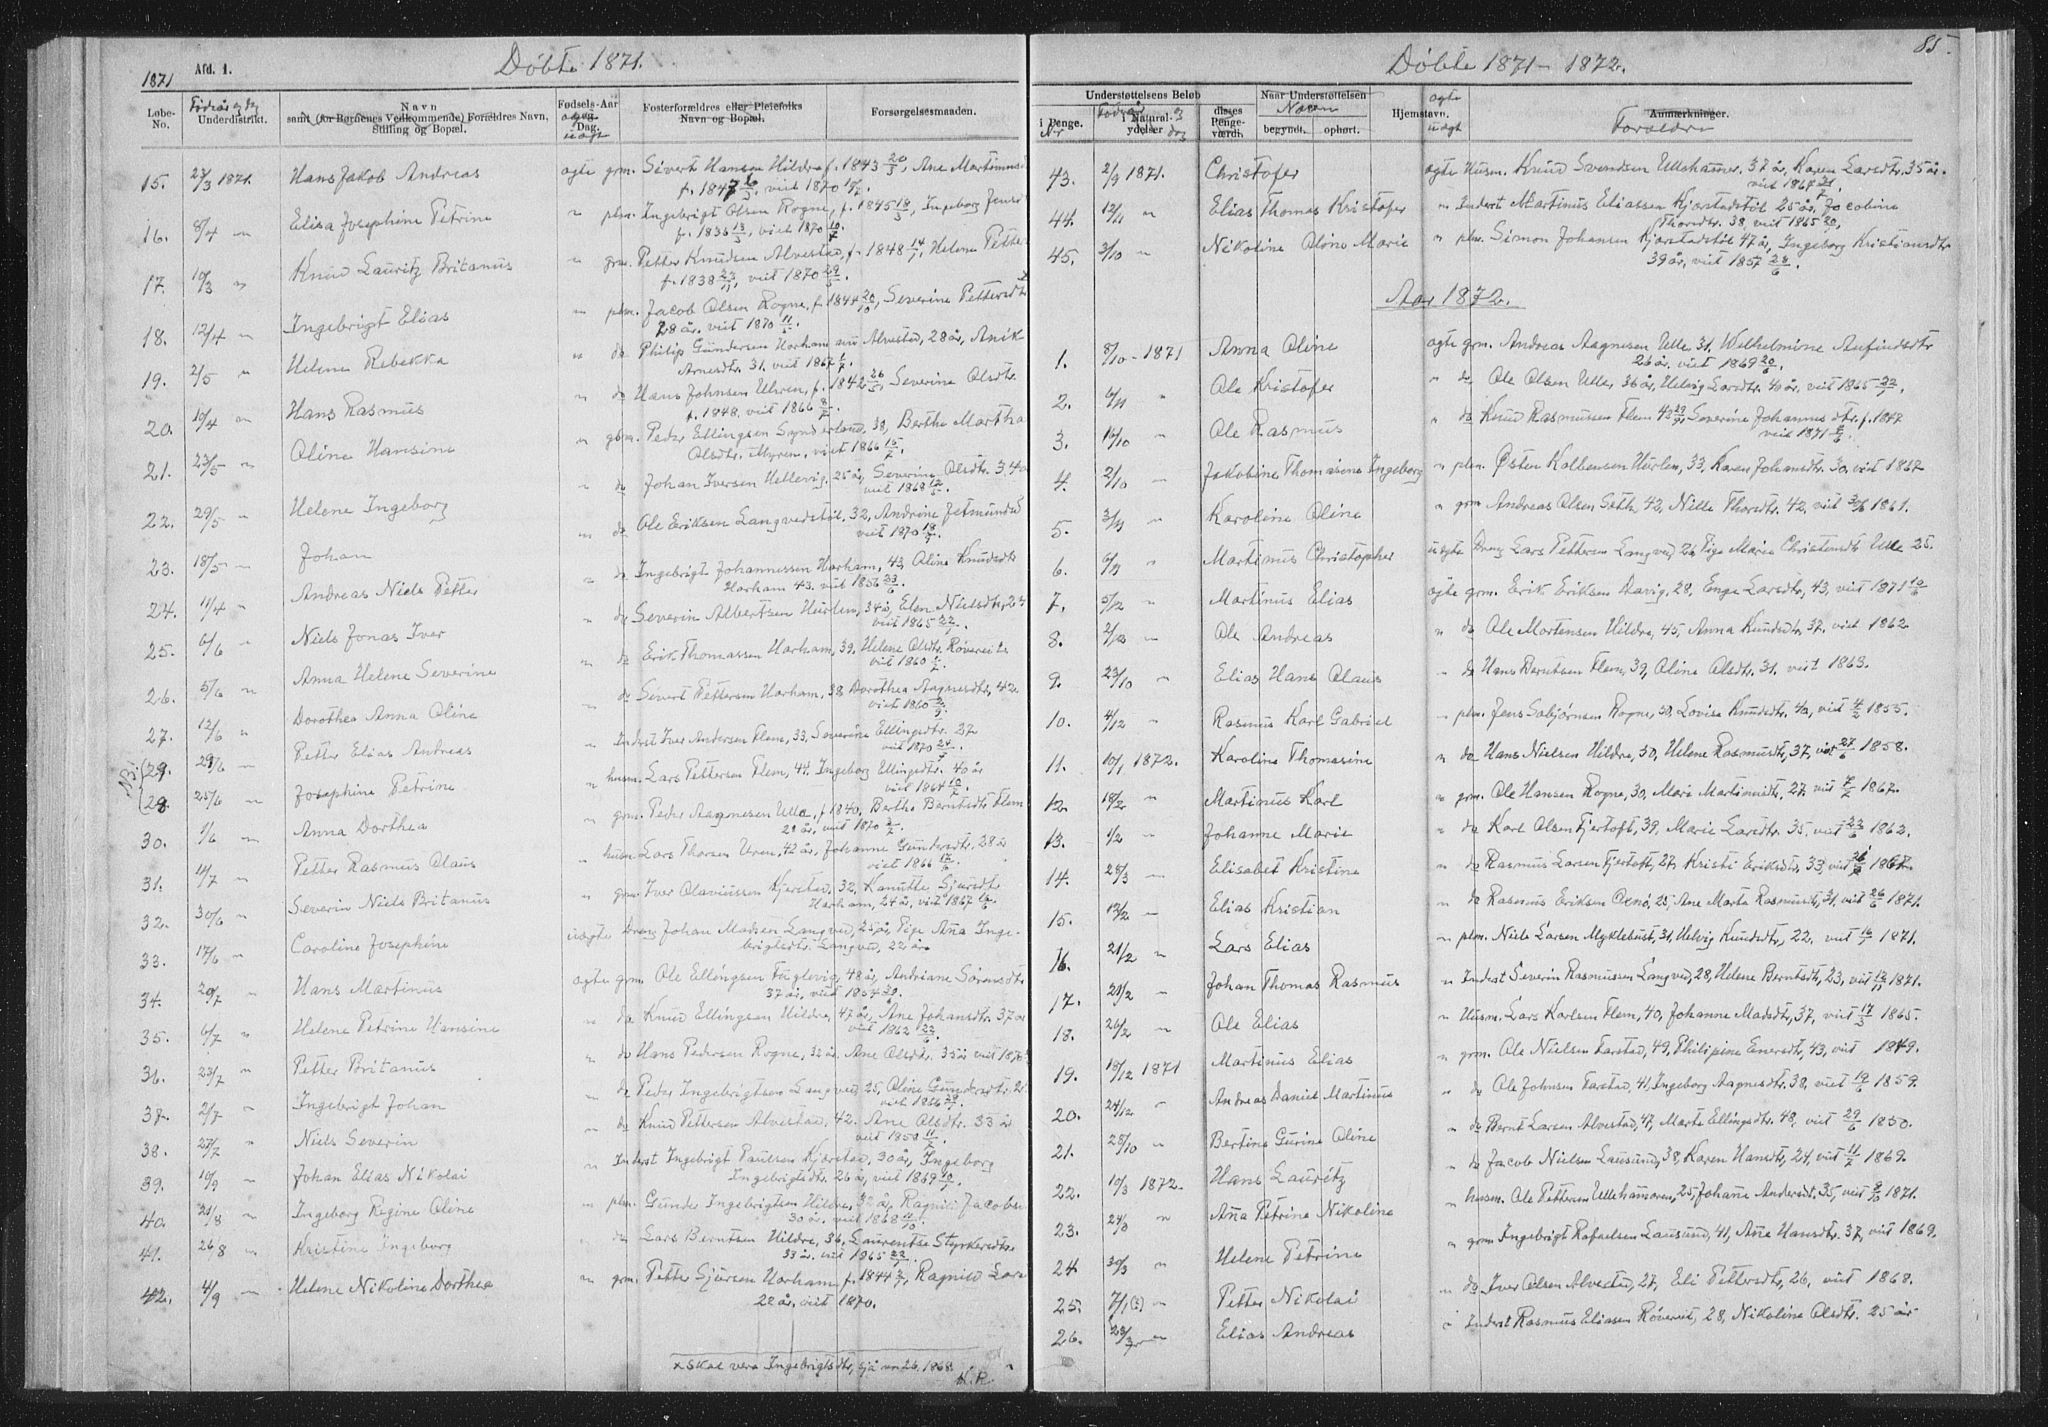 Døbte 1871.
1871
Afd. 1.
Løbe-No.
Fødeår og dag
Underdistrikt.
Navn
samt (for Børnenes Vedkommende) Forældres Navn, Stilling og Bopæl.
Fødsels-Aar og Dag.
ægte
uægt
Fosterforældres eller Pleiefolks Navn og Bopæl.
Forsørgelsesmaaden.
15. 23/3 1871. Hans Jakob Andreas ægte grm. Sivert Hansen Hildre f. 1843 20/3, Ane Martinusd
f. 1847, viet 1870
16. 8/4 " Elisa Josephine Petrine " plm. Ingebrigt Olsen Rogne, f. 1845 18/3, Ingeborg Jensd
f. 1836 13/3, viet 1870 10/7
17. 10/3 " Knud Lauritz Britanus " grm. Petter Knudsen Alvestad, f. 1848 14/1, Helene Petters
f. 1838 22/11, viet 1870 29/5.
18. 12/4 " Ingebrigt Elias " plm. Jacob Olsen Rogne, f. 1844 20/10, Severine Pettersdtr
28 år, viet 1870 11/6.
19. 2/5 " Helene Rebekka " do Philip Gundersen Harham nu Alvestad, 28 år, Anik
Arnesdtr. 31, viet 1867
20. 10/4 " Hans Rasmus " do Hans Johnsen Uhren, f. 1842 26/5, Severine Olsdtr.
f. 1848, viet 1866 8/7.
21. 23/5 " Oline Hansine " gbm. Peder Ellingsen Synderland, 38, Berthe Martha
Olsdtr. Myren, viet 1866 15/7.
22. 29/5 " Helene Ingeborg " do Johan Iversen Hellevig, 25 år, Severine Olsdtr. 34 a
viet 1868 12/5.
23. 18/5 " Johan " do Ole Eriksen Langvedstøl, 32, Andrine Jetmundsd
viet 1870 18/7
24. 11/4 " Andreas Niels Petter " do Ingebrigt Johannessen Harham, 43, Oline Knudsdtr
Harham 43. viet 1856 23/6.
25. 6/6 " Niels Jonas Iver " do Severin Albertsen Hurlen, 34 år, Elen Nielsdtr, 24
viet 1865 22/7.
26. 5/6 " Anna Helene Severine " do Erik Thomassen Harham, 39, Helene Olsdtr. Røvereit
viet 1860
27. 12/6 " Dorothea Anna Oline " do Sivert Pettersen Harham, 38 Dorothea Aagnesdtr, 42
viet 1860
NB. 29. 29/6 " Petter Elias Andreas " Inderst Iver Andersen Flem, 33, Severine Ellingsdtr. 27
viet 1870 24/7.
28. 25/6 " Josephine Petrine " husm. Lars Pettersen Flem, 44, Ingeborg Ellingsdtr. 40 år
viet 1864 10/7.
30. 1/6 " Anna Dorthea " grm. Peder Aagnesen Ulla, f. 1840, Berthe Berntsdtr Flem
29 år, viet 1870 3/7.
31. 11/7 " Petter Rasmus Olaus " husm. Lars Thorsen Uren, 42 år, Johanne Gundersdtr. 28 år
viet 1866 17/6
32. 30/6 " Severin Niels Britanus " grm. Iver Olaviussen Kjerstad, 32, Kanutte Sjursdtr
Harham, 24 år, viet 1867
33. 17/6 " Caroline Josephine uægte Dreng Johan Madsen Langved, 25 år, Pige Aña Inge-
brigtsdtr. Langved, 22 år
34. 29/7 " Hans Martinus ægte grm. Ole Ellingsen Fuglevig, 48 år, Andriane Sørensdtr
37 år, viet 1854
35. 6/7 " Helene Petrine Hansine " do Knud Ellingsen Hildre, 47 år, Ane Johansdtr. 37 år
viet 1862 22/6.
36. 23/7 " Petter Britanus " do Hans Pedersen Rogne, 32 år, Ane Olsdtr. 35 år viet 1870
37. 2/7 " Ingebrigt Johan " do Peder Ingebrigtsen Langved 25, Oline Gundersdtr. 2
viet 1866
38. 27/7 " Niels Severin " do Knud Pettersen Alvestad, 42. Ane Olsdtr. 33 år
viet 1858 11/7.
39. 10/9 " Johan Elias Nikolai " Inderst Ingebrigt Paulsen Kjærstad, 30 år, Ingeborg
Ingebrigtsdtr. 26 år, viet 1869 10/7.
40. 31/8 " Ingeborg Regine Oline " plm. Gunder Ingebrigtsen Hildre, 32 år, Ragnild Jacobsd
30 år, viet 1868 11/10.
41. 26/8 " Kristine Ingeborg " do Lars Berntsen Hildre, 36, Laurentse Styrkersdtr.
33 år, viet 1865 22/7.
42. 4/9 " Helene Nikoline Dorthea " grm. Petter Sjursen Harham, f. 1844, Ragnild Lars
22 år, viet 1870.
x Skal vera Ingebrigtsdtr, sjå nr. 26. 1868.
K.R.
Døbte 1871 - 1872.
85.
Understøttelsens Beløb
i Penge.
Nr
i Natural-ydelser
Fødeår og dag
disses Penge-værdi.
Naar Understøttelsen
begyndt.
ophørt.
Navn
Hjemstavn.
ægte
uægt
Anmærkninger.
Forældre
43. 2/9 1871. Christofer ægte Husm. Knud Svendsen Ullahamer, 37 år, Karen Larsdtr. 35 år.
viet 1867
44. 12/11 " Elias Thomas Kristofer " Inderst Martinus Eliassen Kjærstadstøl 25 år, Jacobine
Thorsdtr. 38, viet 1865
45. 3/10 " Nikoline Oline Marie " plm. Simon Johansen Kjærstadstøl 47 år, Ingeborg Kristiansdtr
39 år, viet 1857 28/6.
Aar 1872.
1. 8/10 - 1871 Anna Oline ægte grm. Andreas Aagnesen Ulle 31, Wilhelmine Aufindsdtr
26 år, viet 1869 20/6.
2. 4/11 " Ole Kristofer " do Ole Olsen Ulle, 36 år, Helvig Larsdtr. 40 år, viet 1865 22/7.
3. 16/10 " Ole Rasmus " do Knud Rasmussen Flem 43, Severine Johannsdtr. f. 1847
viet 1871
4. 2/10 " Jakobine Thomasine Ingeborg " plm. Østen Kolbensen Hurlen, 33, Karen Johansdtr. 30, viet 1867
5. 3/11 " Karoline Oline " grm Andreas Olsen Søth, 42, Nille Thorsdtr. 42, viet 30/6 1861.
6. 6/11 " Martinus Christopher uægte Dreng Lars Pettersen Langved 26, Pige Marie Christensdt. Ulle 25.
7. 5/12 " Martinus Elias ægte grm. Erik Eriksen Davig, 28, Enge Larsdtr, 43, viet 1871
8. 2/12 " Ole Andreas " do Ole Mortensen Hildre, 45, Anna Knudsdtr. 37, viet 1862
9. 23/10 " Elias Hans Olaus " do Hans Berntsen Flem, 39, Oline Olsdtr. 31, viet 1863.
10. 4/12 " Rasmus Karl Gabriel " plm. Jens Solbjørnsen Rogne, 50, Lovise Knudsdtr. 40, viet 1855.
11. 10/1 1872. Karoline Thomasine " do Hans Nielsen Hildre, 50, Helene Rasmusdtr, 37, viet 27/6 1858.
12. 18/2 " Martinus Karl " grm. Ole Hansen Rogne, 30, Mari Martinusdtr, 27, viet 7/7 1867.
13. 1/2 " Johanne Marie " do Karl Olsen Fjertoft, 39, Marie Larsdtr. 35, viet 22/6 1862.
14. 28/3 " Elisabet Kristine " do Rasmus Larsen Fjertoft, 27, Kristi Eriksdtr, 33, viet 1867
15. 13/2 " Elias Kristian " do Rasmus Eriksen Oxnö, 25, Ane Marta Rasmusdt, 31, viet 26/6 1871.
16. 21/2 " Lars Elias " plm. Niels Larsen Myklebust, 31, Helvig Knudsdtr, 22, viet 16/7 1871.
17. 21/2 " Johan Thomas Rasmus " Inderst Severin Rasmussen Langved, 28, Helene Berntsdt, 23, viet 12/11 1871.
18. 26/2 " Ole Elias " Husm. Lars Karlsen Flem, 40, Johanne Madsdtr, 37, viet 17/3 1865.
19. 18/12 1871 Martinus Elias " grm. Ole Nielsen Farstad, 49, Philipine Enersdtr, 43, viet 1849.
20. 24/12 " Andreas Daniel Martinus " do Ole Johnsen Farstad, 41, Ingeborg Aagnesdtr. 38, viet 19/6 1859.
21. 28/10 " Bertine Gurine Oline " do Bernt Larsen Alvestad, 47, Marte Ellingsdtr. 48, viet 29/6 1850.
22. 10/3 1872. Hans Lauritz " do Jacob Nielsen Lausund, 38, Karen Hansdtr, 24, viet 11/7 1869.
23. 24/3 " Aña Petrine Nikoline " husm. Ole Pettersen Ullahameren, 25, Johane Andersdt, 35, viet 8/10 1871.
24. 30/3 " Helene Petrine " grm Ingebrigt Rafaelsen Lausund, 41, Ane Hansdtr. 37, viet 1869.
25. 7/1 (?) " Petter Nikolai " do Iver Olsen Alvestad, 27, Eli Pettersdtr, 26, viet 1868.
26. 23/3 " Elias Andreas " Inderst Rasmus Eliasen Røvereit, 28, Nikoline Olsdtr. 25 år